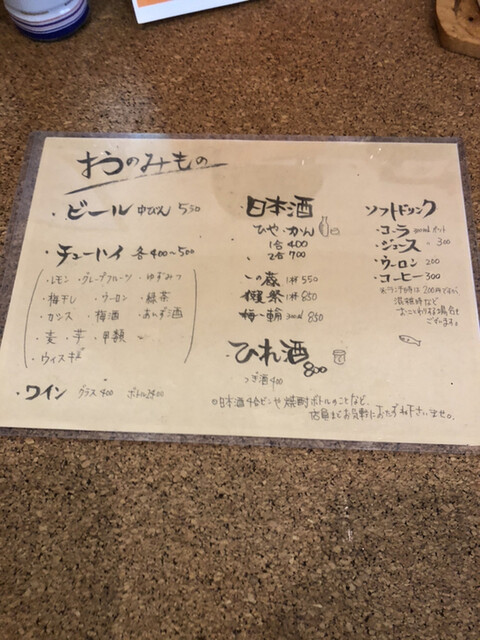 おのみもの
・ビール 中びん 550
・チューハイ 各400~500
・レモン ・グレープフルーツ ・ゆずみつ
・梅干し ・ウーロン ・緑茶
・カシス ・梅酒 ・あんず酒
・麦 ・芋 ・甲類
・ウィスキー
・ワイン グラス 400 ボトル2400
・日本酒
ひや・かん
1合 400
2合 700
・一の蔵 1杯 550
・獺祭 1杯 850
・梅一輪 850
・ひれ酒 800
つぎ酒 400
◎日本酒4合ビンや焼酎ボトルのことなど、
店員までお気軽におたずね下さいませ。
ソフトドリンク
・コーラ
・ジュース 300
・ウーロン 200
・コーヒー 300
※ランチ時は200円ですが、
混雑時など
おことわりする場合も
ございます。